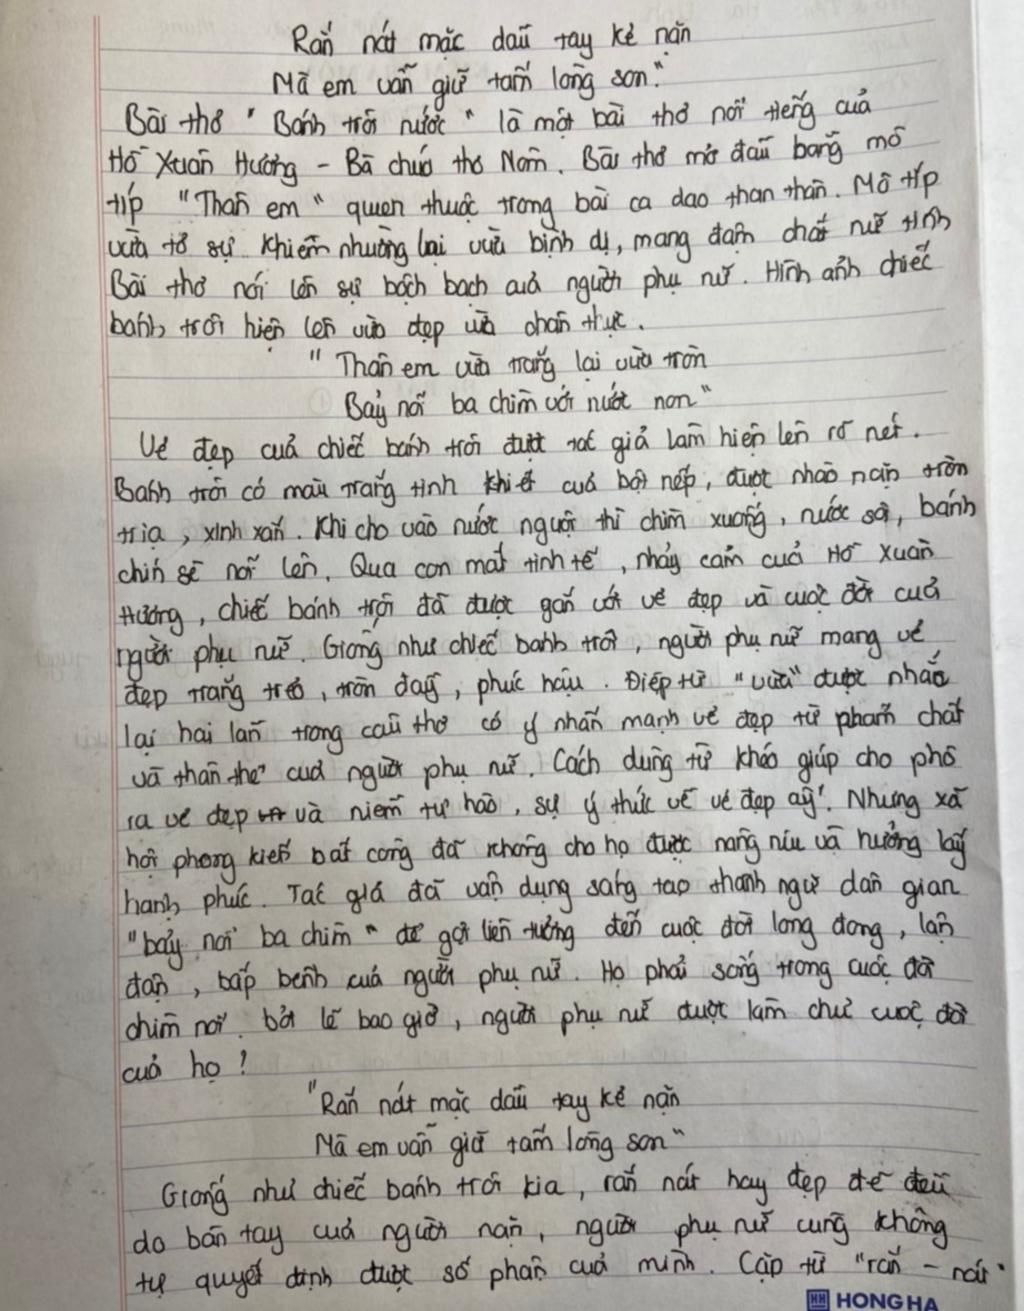 Rắn nát mặc dầu tay kẻ nặn
Mà em vẫn giữ tấm lòng son"
Bài thơ "Bánh trôi nước" là một bài thơ nổi tiếng của
Hồ Xuân Hương - Bà chúa thơ Nôm. Bài thơ mở đầu bằng mô
típ "Thân em" quen thuộc trong bài ca dao than thân. Mô típ
vừa tỏ sự khiêm nhường lại vừa bình dị, mang đậm chất nữ tính
Bài thơ nói lên sự bộch bạch của người phụ nữ. Hình ảnh chiếc
bánh trôi hiện lên vừa đẹp vừa chân thực.
"Thân em vừa trắng lại vừa tròn
Bảy nổi ba chìm với nước non"
Vẻ đẹp của chiếc bánh trôi được tác giả làm hiện lên rõ nét.
Bánh trôi có màu trắng tinh khiết của bột nếp, được nhào nặn tròn
trịa, xinh xắn. Khi cho vào nước nguội thì chìm xuống, nước sôi, bánh
chín sẽ nổi lên. Qua con mắt tinh tế, nhảy cảm của Hồ Xuân
Hương, chiếc bánh trôi đã được gắn với vẻ đẹp và cuộc đời của
người phụ nữ. Giống như chiếc bánh trôi, người phụ nữ mang vẻ
đẹp trắng trẻo, tròn đầy, phúc hậu. Điệp từ "vừa" được nhắc
lại hai lần trong câu thơ có ý nhấn mạnh vẻ đẹp từ phẩm chất
và thân thể của người phụ nữ. Cách dùng từ khéo giúp cho phô
ra vẻ đẹp và niềm tự hào, sự ý thức về vẻ đẹp ấy. Nhưng xã
hội phong kiến bất công đã không cho họ được nâng níu và hưởng lấy
hạnh phúc. Tác giả đã vận dụng sáng tạo thành ngữ dân gian
"bảy nổi ba chìm" để gợi liên tưởng đến cuộc đời long đong, lận
đận, bấp bênh của người phụ nữ. Họ phải sống trong cuộc đời
chìm nổi bởi lẽ bao giờ, người phụ nữ được làm chủ cuộc đời
của họ!
"Rắn nát mặc dầu tay kẻ nặn
Mà em vẫn giữ tấm lòng son"
Giống như chiếc bánh trôi kia, rắn nát hay đẹp đẽ đều
do bàn tay của người nặn, người phụ nữ cũng không
tự quyết định được số phận của mình. Cặp từ "rắn - nát"
HONG HA